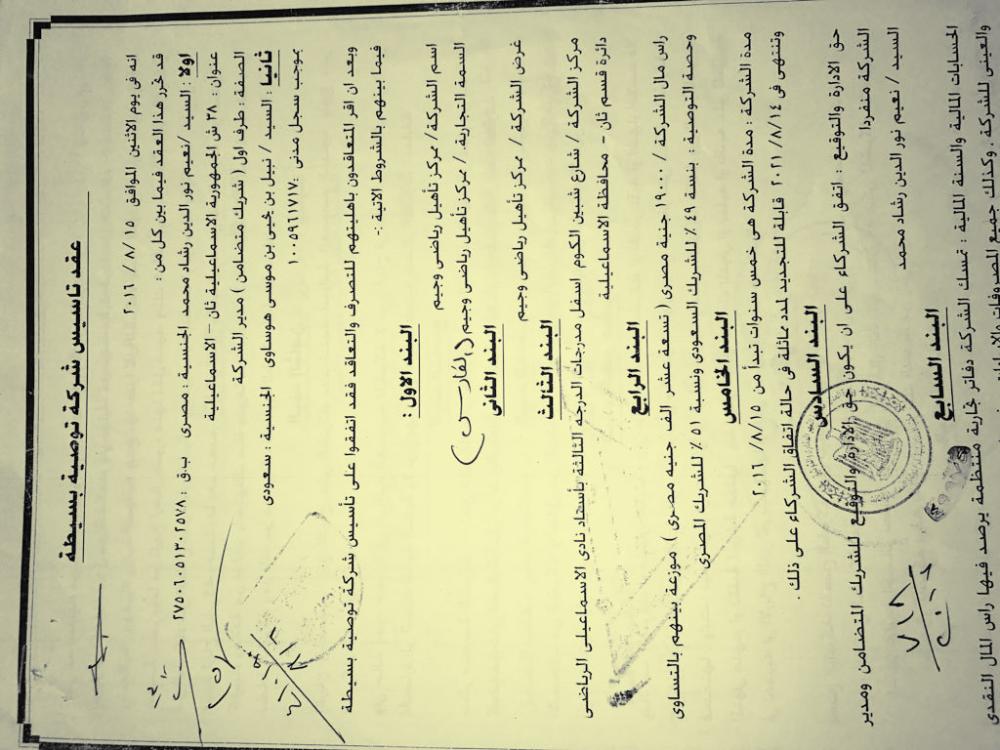 عقد تاسيس شركة توصية بسيطة
انه فى يوم الاثنين الموافق ١٥ / ٨/ ٢٠١٦
قد تحرر هذا العقد فيما بين كل من :
اولا : السيد /نعيم نور الدين رشاد محمد الجنسية : مصرى ب.ق : ٢٧٥٠٦٠٥١٣٠٢٥٧٨
عنوان : ٣٨ ش الجمهورية الاسماعيلية ثان – الاسماعيلية
الصفة : طرف اول ( شريك متضامن ) مدير الشركة
ثانيا : السيد / نبيل بن يحيى بن موسى هوساوى الجنسية : سعودى
بموجب سجل مدنى : ١٠٠٥٩٦١٧١٧
وبعد ان اقر المتعاقدون باهليتهم للتصرف والتعاقد فقد اتفقوا على تأسيس شركة توصية بسيطة
فيما بينهم بالشروط الاتية :-
البند الاول :
اسم الشركة/ مركز تأهيل رياضى وجيم
السمة التجارية / مركز تأهيل رياضى وجيم (الفارس)
البند الثانى
غرض الشركة / مركز تأهيل رياضى وجيم
البند الثالث
مركز الشركة / شارع شبين الكوم اسفل مدرجات الدرجه الثالثة بأستاد نادى الاسماعيلى الرياضى
دائرة قسم ثان - محافظة الاسماعيلية
البند الرابع
راس مال الشركة / ١٩٠٠٠ جنية مصرى ( تسعة عشر الف جنيه مصرى ) موزعة بينهم بالتساوى
وحصة التوصية : بنسة ٤٩ ٪ للشريك السعودى ونسبة ٥١ ٪ للشريك المصرى
البند الخامس
مدة الشركة : مدة الشركة هى خمس سنوات تبدأ من ١٥/ ٨/ ٢٠١٦
وتنتهى فى ١٤/ ٨/ ٢٠٢١ قابلة للتجديد لمدد مماثلة فى حالة اتفاق الشركاء على ذلك .
البند السادس
حق الادارة والتوقيع : اتفق الشركاء على ان يكون حق الادارة والتوقيع للشريك المتضامن ومدير
الشركة منفردا
السيد / نعيم نور الدين رشاد محمد
البند السابع
الحسابات المالية والسنة المالية : تمسك الشركة دفاتر تجارية منتظمة يرصد فيها راس المال النقدى
والعينى للشركة . وكذلك جميع المصروفات والايرادات